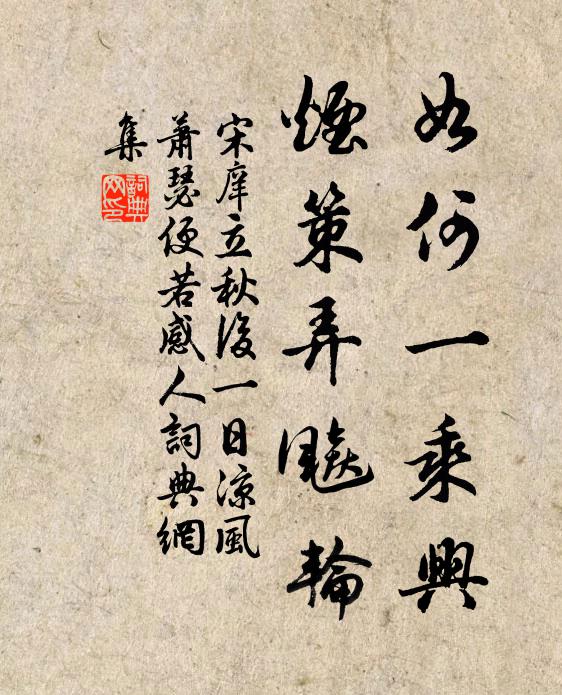 如何一乘興
煙策弄飈輪
宋庠立秋後一日涼風
蕭瑟便若感人詞典網
集
詞典
网印